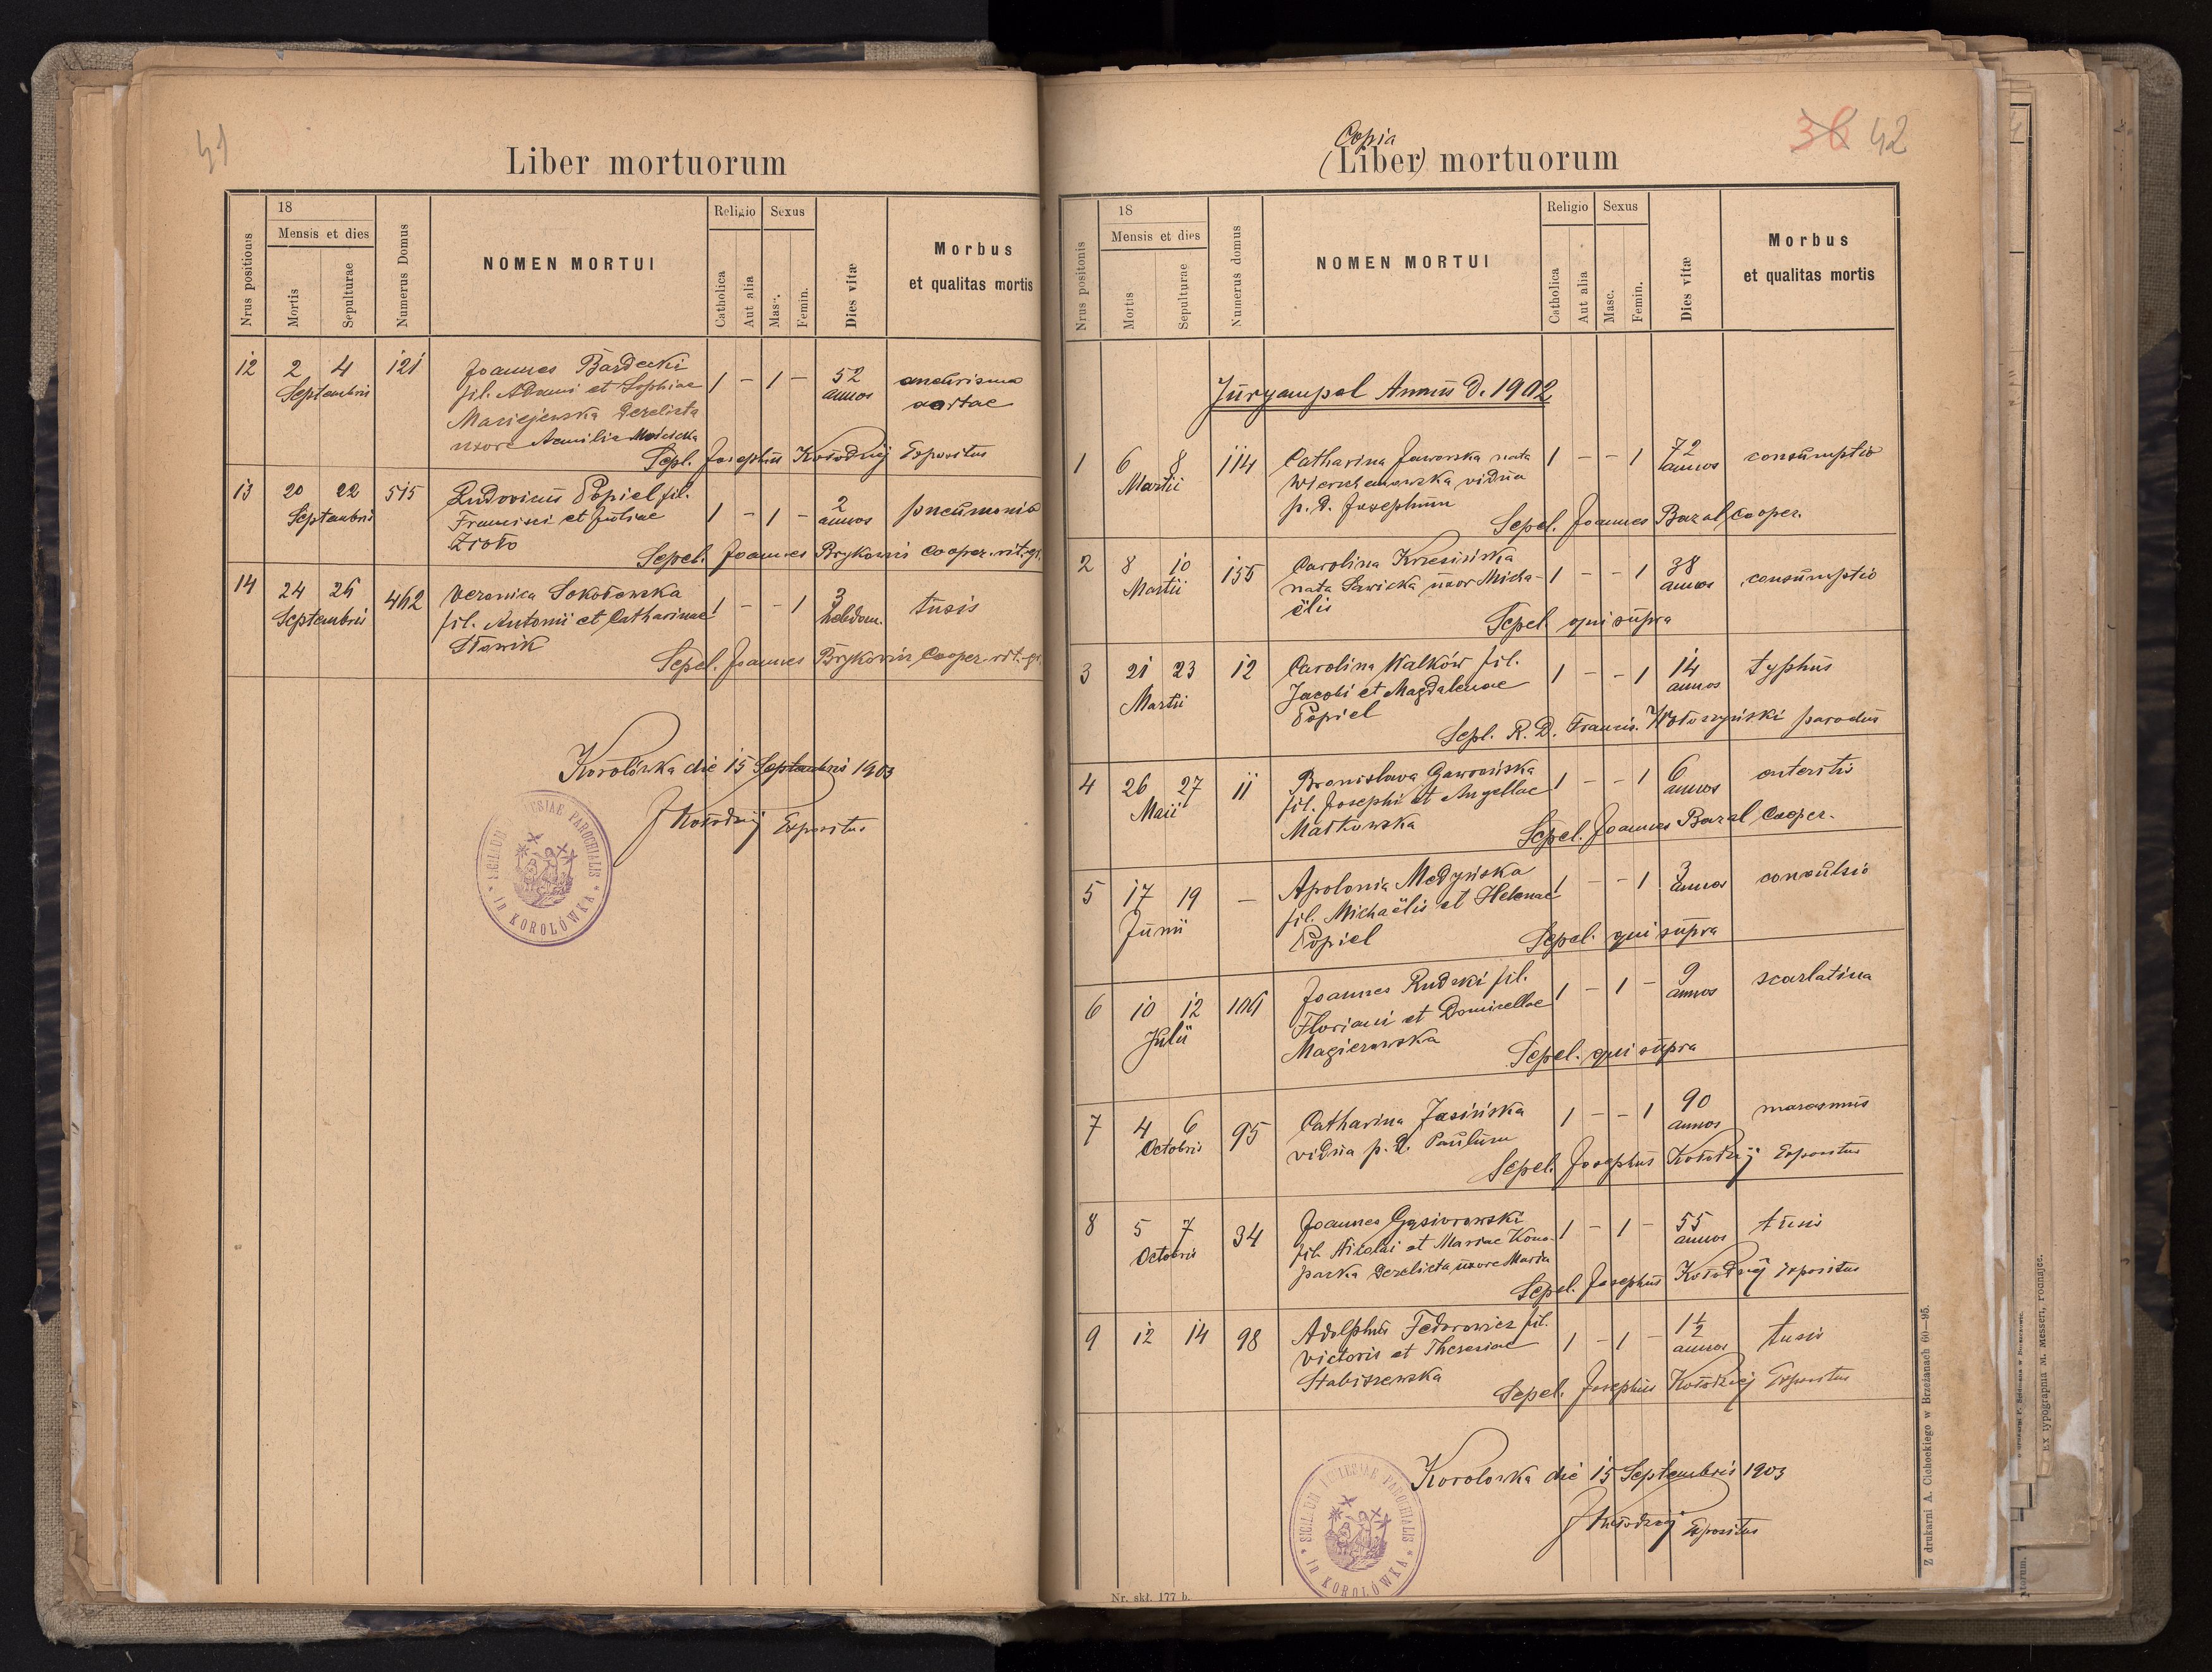 41
Liber mortuorum
Nrus positionis
18
Mensis et dies
Mortis
Sepulturae
Numerus Domus
NOMEN MORTUI
Religio
Catholica
Aut alia
Sexus
Masc.
Femin.
Dies vitæ
Morbus
et qualitas mortis
12 2 4 121 Joannes Bardecki
Septembris fil. Adami et Sophiae 1 - 1 - 52 aneurisma
annos aortae
Maciejewska derelicta
uxore Aemilia
Sepl. Josephus Kołodziej Expositus
13 20 22 515 Ludovicus Popiel fil.
Septembris Francisci et Juliae 1 - 1 - 2 annos pneumonia
Zioło
Sepel. Joannes Brykowicz Cooper. rit. gr.
14 24 26 462 Veronica Sokołowska
Septembris fil. Antonii et Catharinae 1 - - 1 3 hebdom. tusis
Sławik
Sepel. Joannes Brykowicz Cooper. rit. gr.
Korolówka die 15 Septembris 1903
JKołodziej Expositus
SIGILLUM ECCLESIAE PAROCHIALIS
in KOROLÓWKA
36 42
Copia
(Liber) mortuorum
Nrus positonis
18
Mensis et dies
Mortis
Sepulturae
Numerus domus
NOMEN MORTUI
Religio
Catholica
Aut alia
Sexus
Masc.
Femin.
Dies vitæ
Morbus
et qualitas mortis
Juryampol Annus D. 1902
1 6 8 114 Catharina Jaworska nata 1 - - 1 72 annos consumptio
Martii
vidua
p. D. Josephum
Sepel. Joannes Bazal Cooper.
2 8 10 155 Carolina Krzesińska
Martii nata Sawicka uxor Micha- 1 - - 1 38 annos consumptio
ëlis
Sepel. qui supra
3 21 23 12 Carolina Walków fil.
Martii Jacobi et Magdalenae 1 - - 1 14 annos typhus
Popiel
Sepl. R. D. Francis. Wołoszyński parochus
4 26 27 11 Bronislava Gawrońska 1 - - 1 6 annos enteritis
Maii fil. Josephi et Angellae
Małkowska
Sepel. Joannes Bazal Cooper.
5 17 19 - Apolonia Medyńska 1 - - 1 3 annos convulsio
Junii fil. Michaëlis et Helenae
Popiel
Sepel. qui supra
6 10 12 106 Joannes Rudzki fil. 1 - 1 - 9 annos scarlatina
Julii Floriani et Domicellae
Magierowska
Sepel. qui supra
7 4 6 95 Catharina Jasińska 1 - - 1 90 annos marasmus
Octobris vidua p. d. Paulum
Sepel. Josephus Kołodziej Expositus
8 5 7 34 Joannes Gąsiorowski 1 - 1 - 55 annos tusis
Octobris fil. Nicolai et Mariae Kono-
packa derelicta uxore Maria
Sepel. Josephus Kołodziej Expositus
9 12 14 98 Adolphus Fedorowicz fil.
Victoris et Theresiae 1 - 1 - 1½ annos tusis
Stabiszewska
Sepel. Josephus Kołodziej Expositus
Korolowka die 15 Septembris 1903
JKołodziej Expositus
SIGILLUM ECCLESIAE PAROCHIALIS
in KOROLÓWKA
Nr. skł. 177 b.
Z drukarni A. Cichockiego w Brzeżanach 60—95.
Ex typographia M. Messeri, Podhajce.